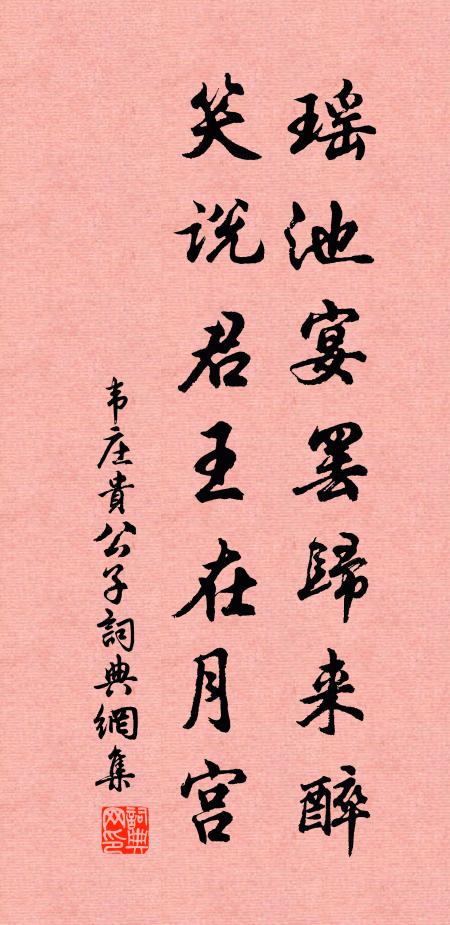 瑶池宴罢歸来醉
笑说君王在月宫
韦庄貴公子詞典網集
詞典网印